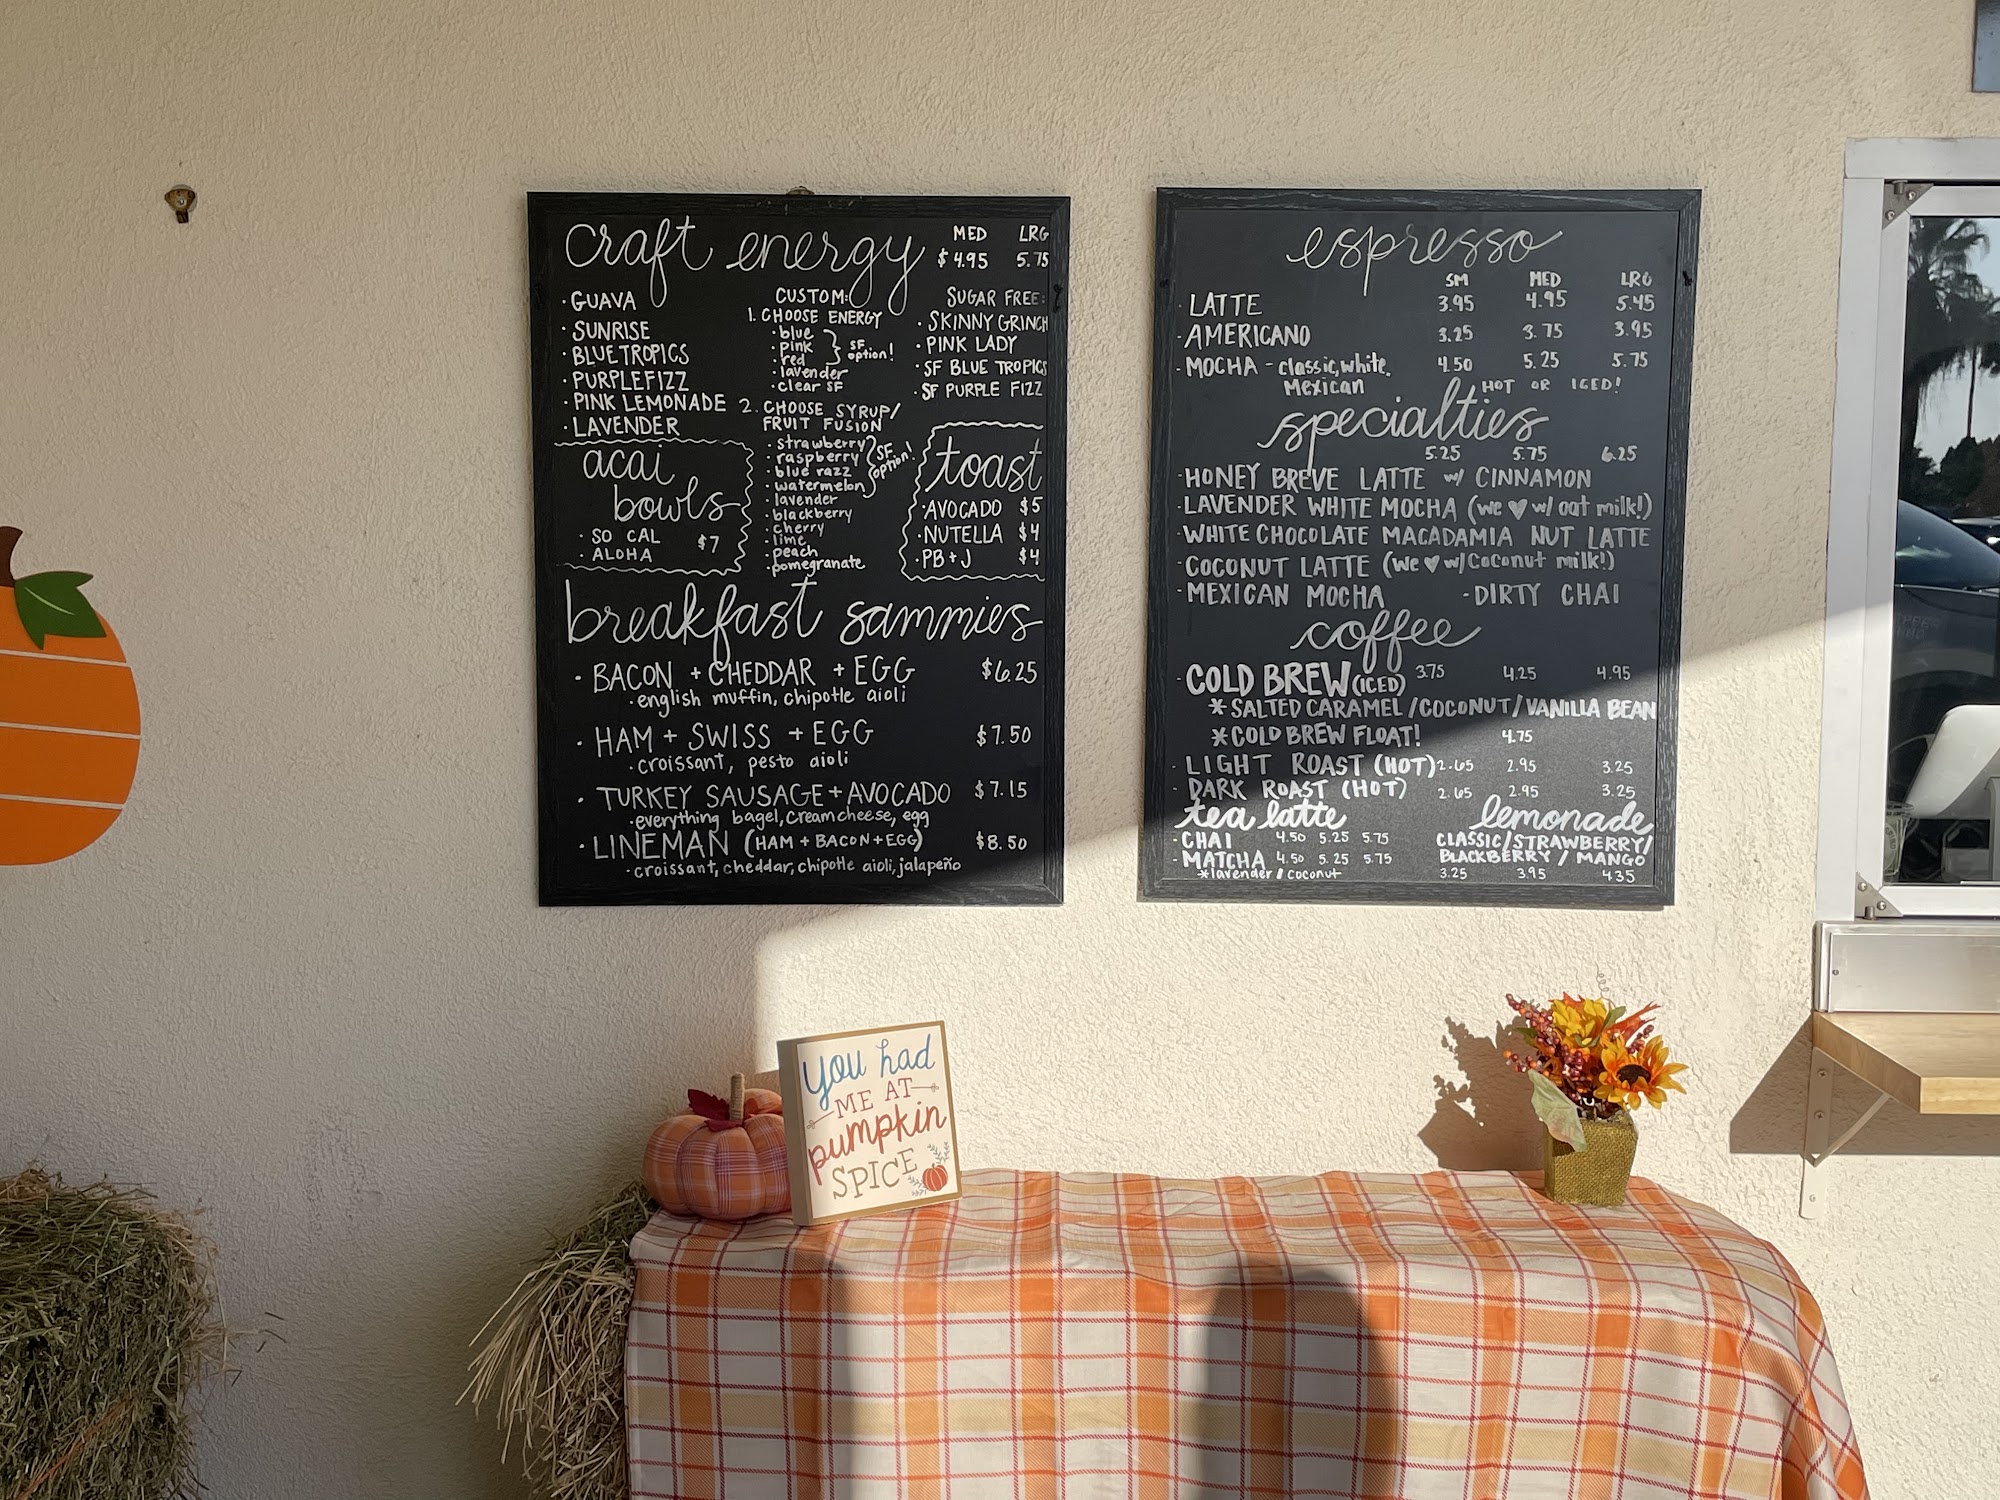 craft energy MED LRG
$4.95 5.75
· GUAVA
· SUNRISE
· BLUE TROPICS
· PURPLE FIZZ
· PINK LEMONADE
· LAVENDER
CUSTOM:
1. CHOOSE ENERGY
· blue
· pink
· red
SF option!
· lavender
· clear SF
2. CHOOSE SYRUP/
FRUIT FUSION
· strawberry
· raspberry
· blue razz
· watermelon
SF option!
· lavender
· blackberry
· cherry
· lime
· peach
· pomegranate
SUGAR FREE:
· SKINNY GRINCH
· PINK LADY
· SF BLUE TROPICS
· SF PURPLE FIZZ
acai
bowls
· SO CAL
· ALOHA
$7
toast
· AVOCADO $5
· NUTELLA $4
· PB+J $4
breakfast sammies
· BACON + CHEDDAR + EGG $6.25
· english muffin, chipotle aioli
· HAM + SWISS + EGG $7.50
· croissant, pesto aioli
· TURKEY SAUSAGE + AVOCADO $7.15
· everything bagel, cream cheese, egg
· LINEMAN (HAM + BACON + EGG) $8.50
· croissant, cheddar, chipotle aioli, jalapeño
espresso
SM MED LRG
· LATTE 3.95 4.95 5.45
· AMERICANO 3.25 3.75 3.95
· MOCHA - classic, white, 4.50 5.25 5.75
Mexican HOT OR ICED!
specialties
5.25 5.75 6.25
· HONEY BREVE LATTE w/ CINNAMON
· LAVENDER WHITE MOCHA (we ♥ w/ oat milk!)
· WHITE CHOCOLATE MACADAMIA NUT LATTE
· COCONUT LATTE (we ♥ w/ coconut milk!)
· MEXICAN MOCHA - DIRTY CHAI
coffee
· COLD BREW (ICED) 3.75 4.25 4.95
* SALTED CARAMEL / COCONUT / VANILLA BEAN
* COLD BREW FLOAT! 4.75
· LIGHT ROAST (HOT) 2.65 2.95 3.25
· DARK ROAST (HOT) 2.65 2.95 3.25
tea latte
· CHAI 4.50 5.25 5.75
· MATCHA 4.50 5.25 5.75
* lavender / coconut
lemonade
CLASSIC/STRAWBERRY/
BLACKBERRY / MANGO
3.25 3.95 4.35
you had
ME AT
pumpkin
SPICE